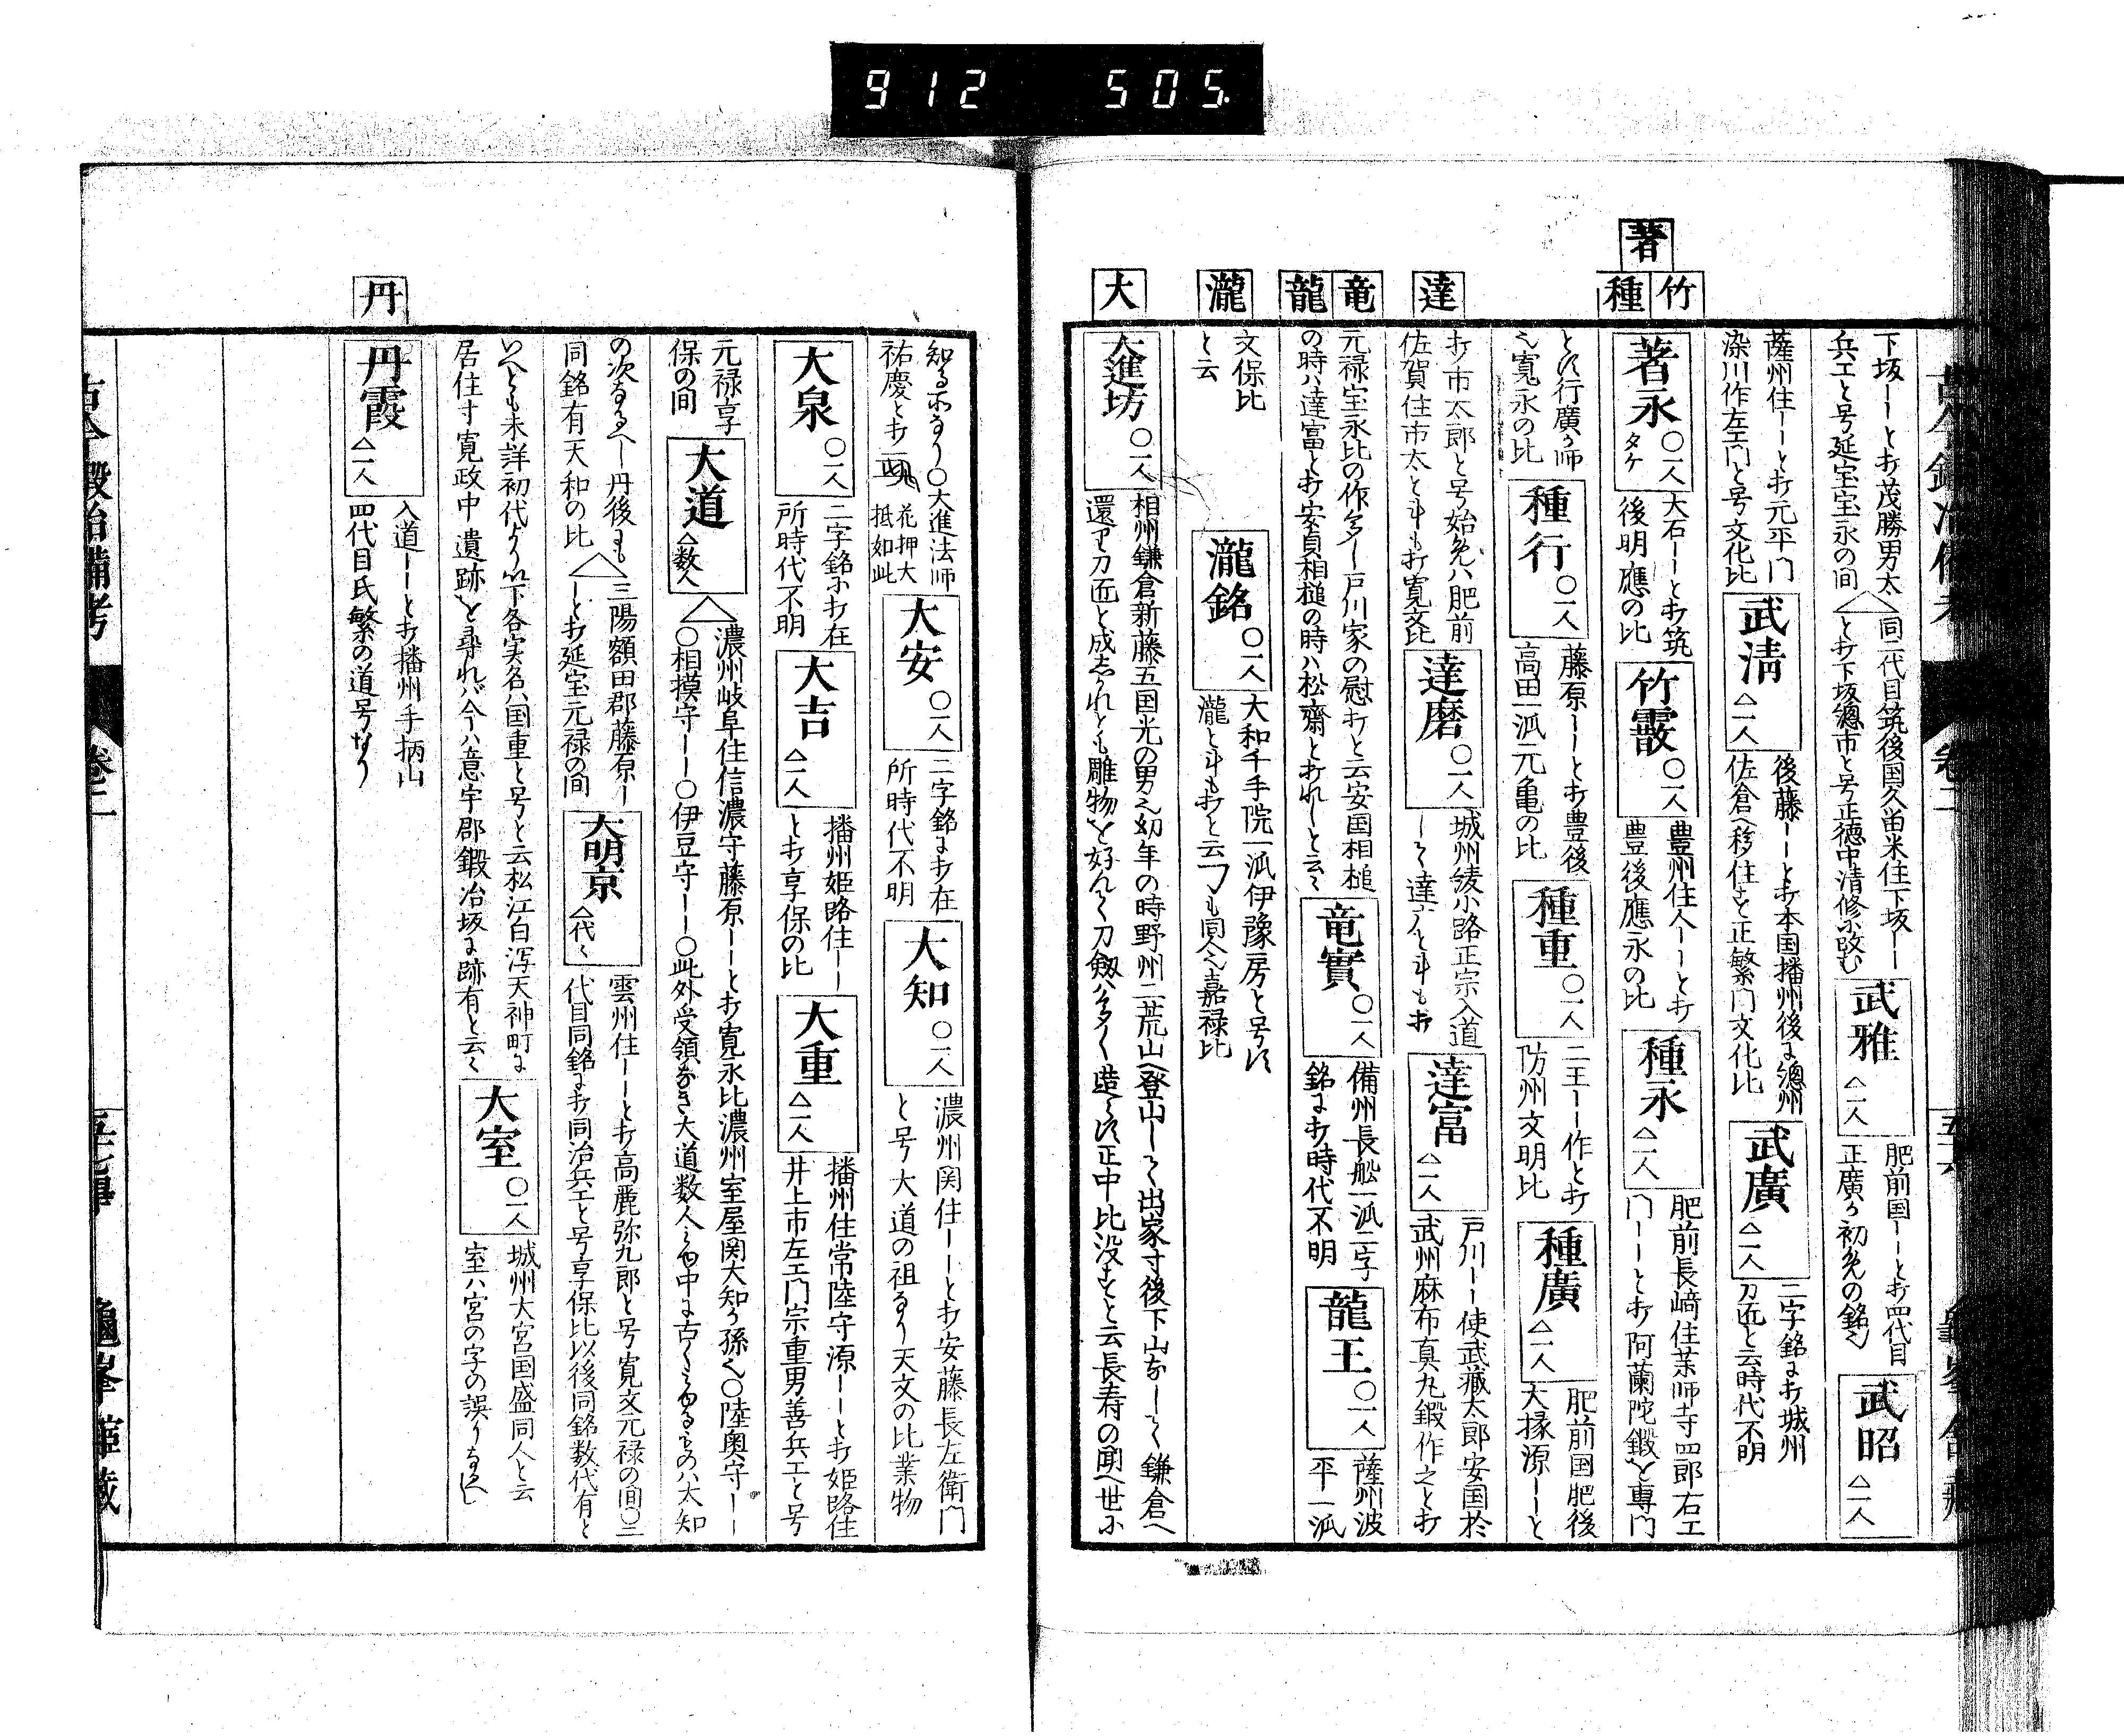 912 505.
著
竹
種
達
竜
龍
瀧
大
下坂ーーと打茂勝男太
兵エと号延宝宝永の間
同二代目筑後国久留米住下坂ーー
と打下坂總市と号正徳中清修ニ改む
武雅 △一人
肥前国ーーと打四代目
正廣の初免の銘也
武昭 △一人
薩州住ーーと打元平門
染川作左エ門と号文化比
武清 △一人
後藤ーーと打本国播州後に總州
佐倉へ移住す正繁門文化比
武廣 △一人
二字銘に打城州
刀匠と云時代不明
著永 タケ 〇一人
大石ーーと打筑
後明應の比
竹霰 〇一人
豊州住人ーーと打
豊後應永の比
種永 △一人
肥前長﨑住茉师寺四郎右エ
门ーーと打阿蘭陀鍛を專門
とす行廣の师
也寛永の比
種行 〇一人
藤原ーーと打豊後
高田一派元亀の比
種重 〇一人
二王ー作と打
防州文明比
種廣 △一人
肥前国肥後
大掾源ーーと
打市太郎と号始免ハ肥前
佐賀住市太と斗も打寛文比
達磨 〇一人
城州綾小路正宗入道
ーて達アんと斗も打
達富 △一人
戸川ーー使武蔵太郎安国於
武州麻布真九鍛作之と打
元禄宝永比の作多ー戸川家の慰打と云安国相槌
の時ハ達富と打安貞相槌の時ハ松齋と打れーと云々
竜實 〇一人
備州長舩一派二字
銘に打時代不明
龍王 〇一人
薩州波
平一派
文保比
と云
瀧銘 〇一人
大和千手院一派伊豫房と号す
瀧と斗も打と云フも同人也嘉禄比
大進坊 〇一人
相州鎌倉新藤五国光の男也幼年の時野州二荒山へ登山ーて出家す後下山なーて鎌倉へ
還り刀匠と成志かれとも雕物を好んて刀劔ハ多く造らす正中比没すと云長寿の聞へ世ニ
丹
知る所なり〇大進法师
祐慶と打
花押大
抵如此
大安 〇一人
二字銘に打在
所時代不明
大知 〇一人
濃州関住ーーと打安藤長左衛門
と号大道の祖なり天文の比業物
大泉 〇一人
二字銘ニ打在
所時代不明
大吉 △一人
播州姫路住ーー
と打享保の比
大重 △一人
播州住常陸守源ーーと打姫路住
井上市左エ門宗重男善兵エと号
元禄享
保の間
大道 △数人
濃州岐阜住信濃守藤原ーーと打寛永比濃州室屋関大知の孫也〇陸奥守ーー
〇相摸守ーー〇伊豆守ーー〇此外受領なき大道数人あり中に古くみゆるものハ大知
の次なるへー丹後にも
同銘有天和の比
三陽額田郡藤原ー
ーと打延宝元禄の间
大明京 △代々
雲州住ーーと打高麗弥九郎と号寛文元禄の间〇三
代目同銘に打同治兵エと号享保比以後同銘数代有と
いへとも未詳初代より以下各実名ハ国重と号と云松江白潟天神町に
居住す寛政中遺跡を尋れバ今ハ意宇郡鍛冶坂に跡有と云々
大室 〇一人
城州大宮国盛同人と云
室ハ宮の字の誤りなるへし
丹霞 △一人
入道ーーと打播州手柄山
四代目氏繁の道号なり
古今鍛冶備考
卷二